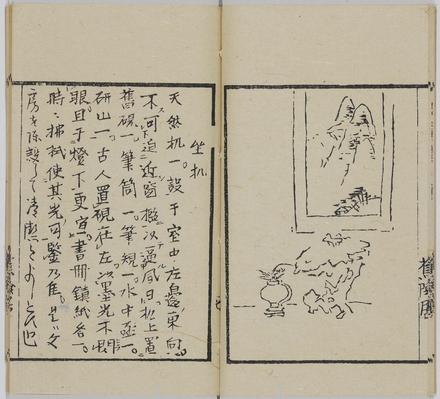 坐机
天然机一。設于室中左邊東向
不可迫近窗檻以逼風日机上置
舊硯一筆筒一筆規一水中丞一
研山一古人置硯在左以墨光不閃
眼且于燈下更宜書冊鎮紙各一。
時〻拂拭使其光可鑒乃佳。是ハ文
房ヲ陳設シテ清潔